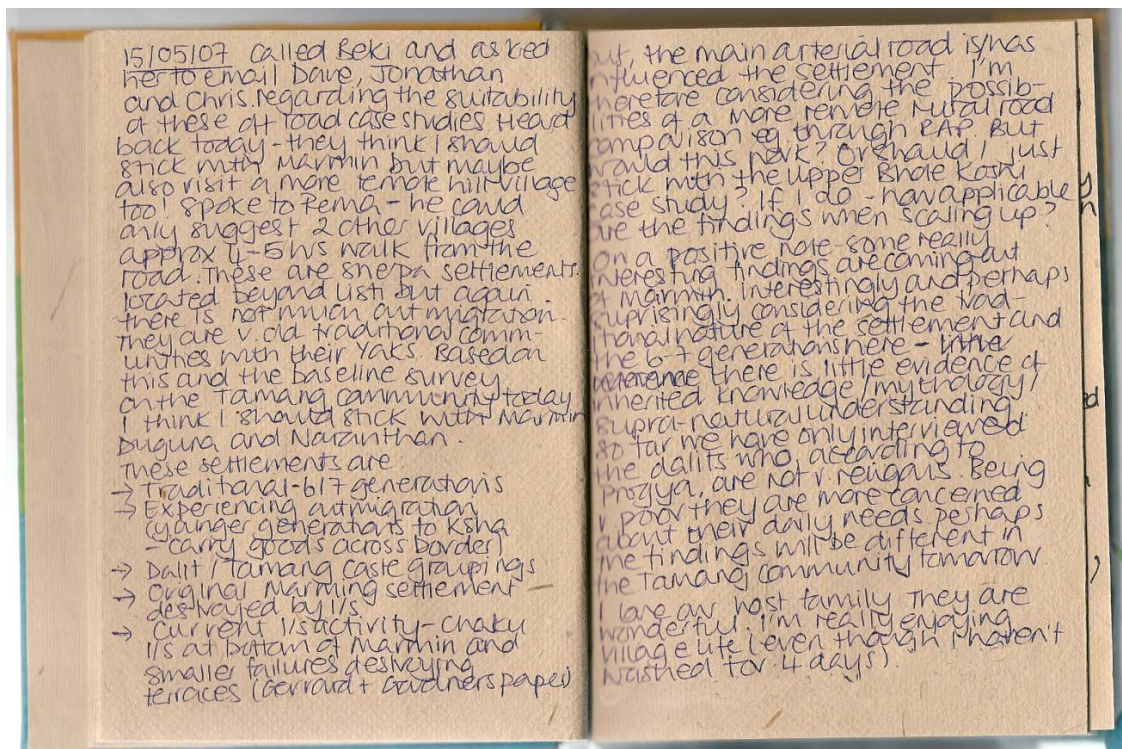 15/05/07 Called Beki and asked
her to email Dave, Jonathan
and Chris regarding the suitability
of these off road case studies. Heard
back today - they think I should
stick with Marmin but maybe
also visit a more remote hill village
too! Spoke to Pema - he could
only suggest 2 other villages
approx 4-5hrs walk from the
road. These are sherpa settlements
located beyond Listi but again
there is not much outmigration.
They are v. old traditional comm-
unities with their Yaks. Based on
this and the baseline survey
on the Tamang community today
I think I should stick with Marmin
Duguna and Naranthan.
These settlements are:
→ Traditional - 6/7 generations
→ Experiencing outmigration
(younger generations to Ksha
- carry goods across border)
→ Dalit / Tamang caste groupings
→ Original Marming settlement
destroyed by l/s
→ Current l/s activity - Chaku
l/s at bottom of Marmin and
smaller failures destroying
terraces (Gerrard + Gardners paper)
but, the main arterial road is/has
influenced the settlement. I'm
therefore considering the possib-
ilities of a more remote rural road
comparison eg through RAP. But
would this work? Or should I just
stick with the upper Bhote Koshi
case study? If I do - how applicable
are the findings when scaling up?
On a positive note - some really
interesting findings are coming out
of Marmin. Interestingly and perhaps
suprisingly considering the trad-
itional nature of the settlement and
the 6-7 generations here -
there is little evidence of
inherited knowledge / mythology /
supra-natural understanding.
So far we have only interviewed
the dalits who, according to
Progya, are not v. religous. Being
v poor they are more concerned
about their daily needs perhaps
the findings will be different in
the Tamang community tomorrow.
I love our host family. They are
wonderful. I'm really enjoying
village life (even though I haven't
washed for 4 days).